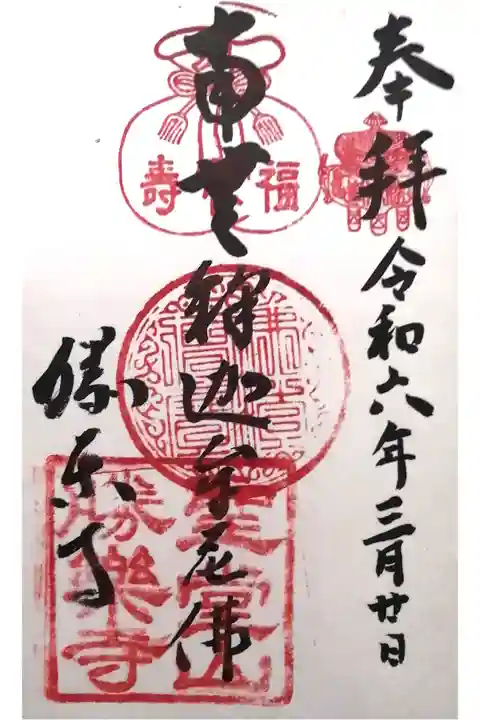 奉拝
令和六年三月廿日
南無釋迦牟尼佛
勝楽寺
福 寿
勝樂寺